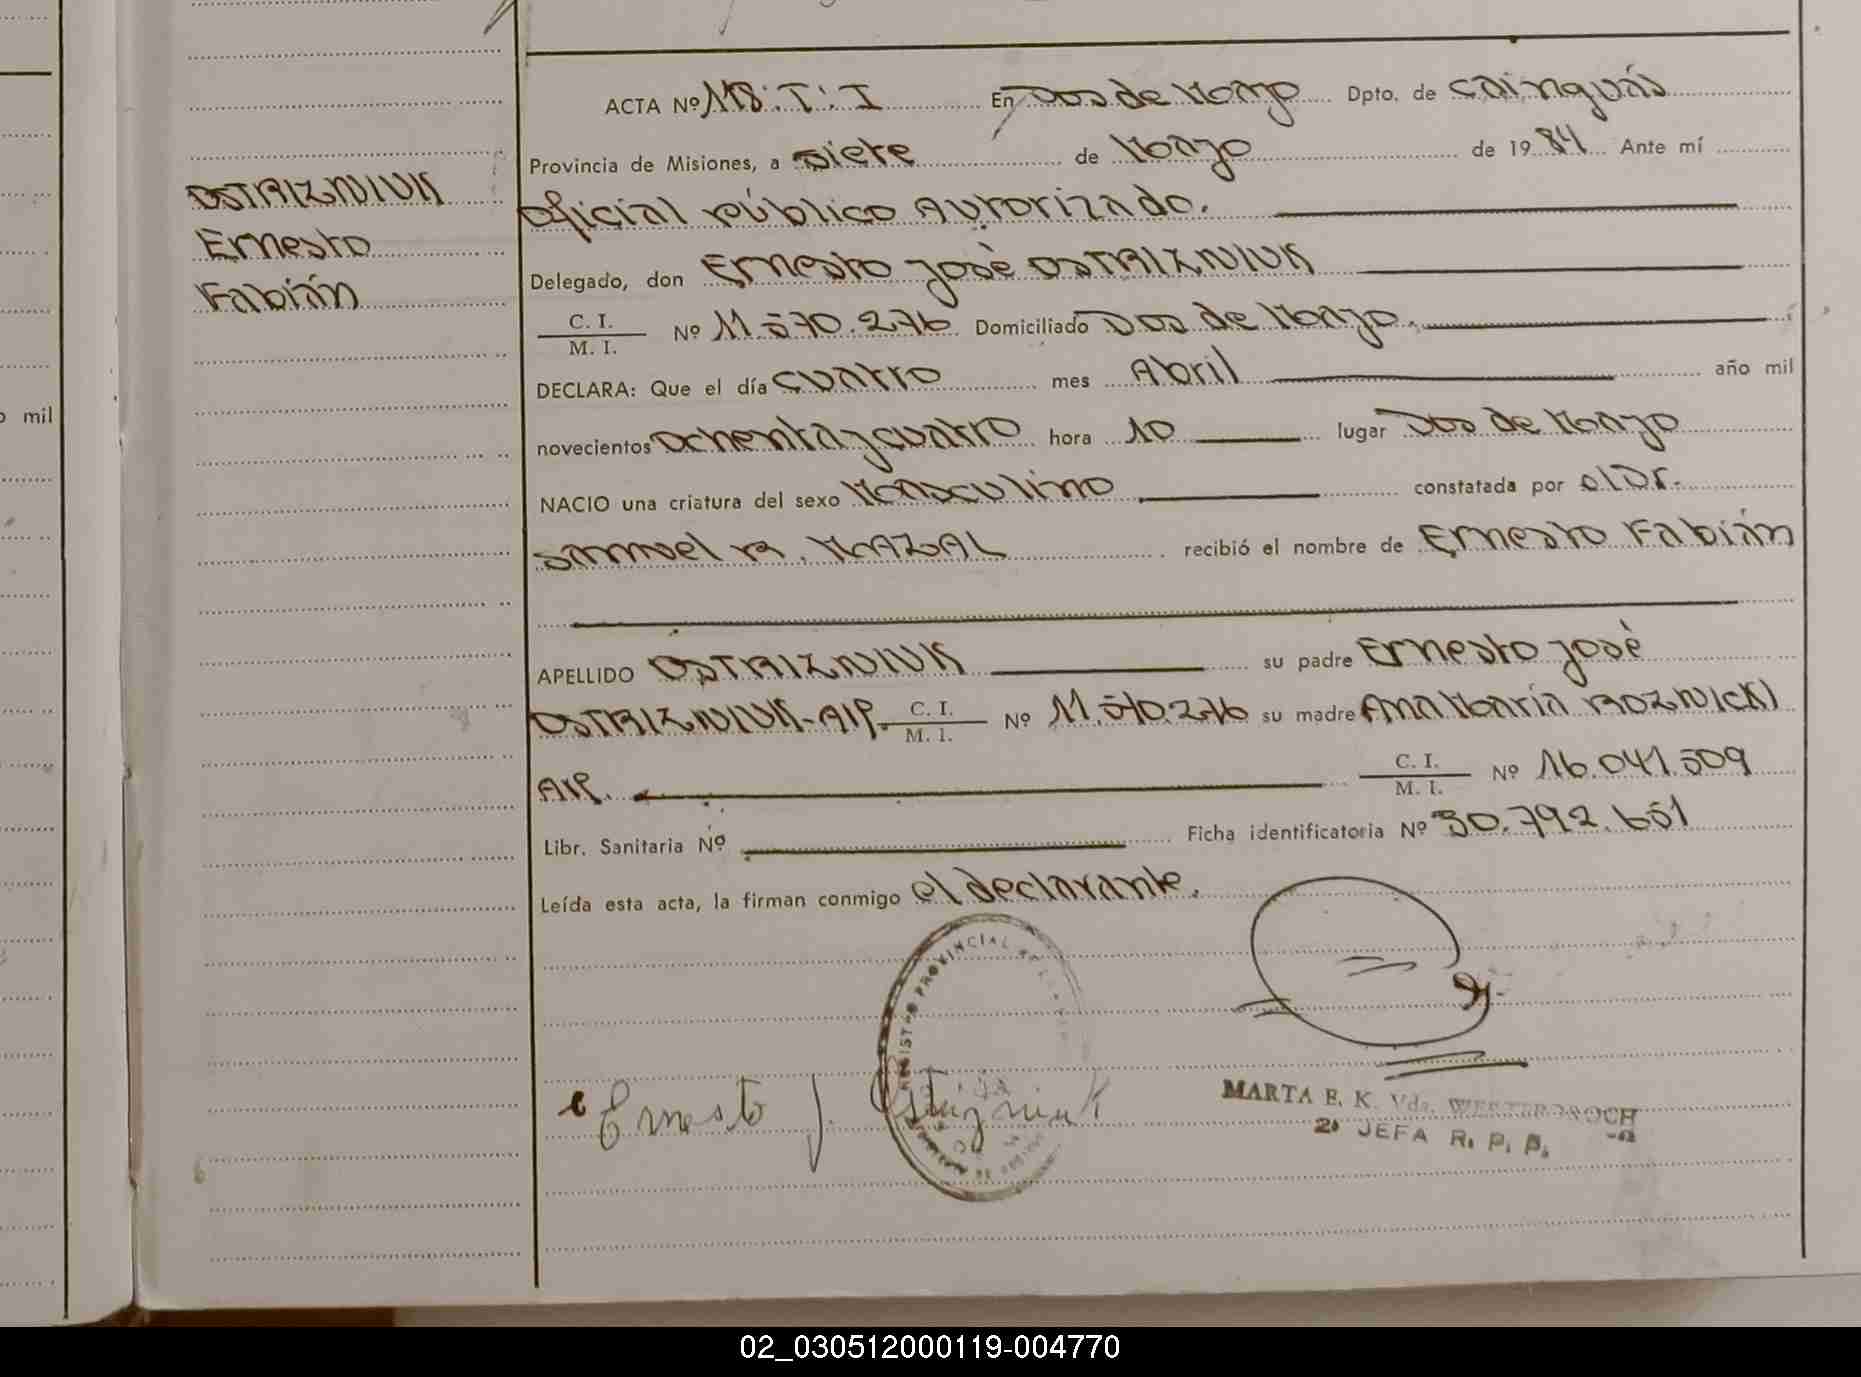 ACTA Nº 118:T:I En Dos de Mayo Dpto. de Cainguás
Provincia de Misiones, a siete de Mayo de 1984 Ante mí
Oficial público Autorizado.
OSTRIZNIUK
Ernesto
Fabián
Delegado, don Ernesto José OSTRIZNIUK
C. I. / M. I. Nº 11.570.276 Domiciliado Dos de Mayo.
DECLARA: Que el día cuatro mes Abril año mil
novecientos ochenta y cuatro hora 10 lugar Dos de Mayo
NACIO una criatura del sexo Masculino constatada por el Dr.
Samuel R. MAZAL recibió el nombre de Ernesto Fabián
APELLIDO OSTRIZNIUK su padre Ernesto José
OSTRIZNIUK-AIP. C. I. / M. I. Nº 11.570.276 su madre Ana María ROZNICKI
AIP. C. I. / M. I. Nº 16.041.509
Libr. Sanitaria Nº Ficha identificatoria Nº 30.792.651
Leída esta acta, la firman conmigo el declarante.
Ernesto J. Ostrizniuk
MARTA E. K. Vda. WESTERBROCH
2ª JEFA R. P. P.
o mil
REGISTRO PROVINCIAL DE LAS
02_030512000119-004770